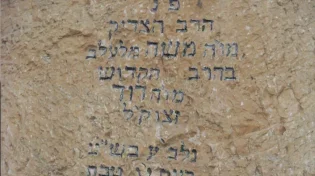 פ נ
הרב הצדיק
מוה משה מלעלב
בהרב הקדוש
מוה דוד
זצוק"ל
נלב ע בש"ע